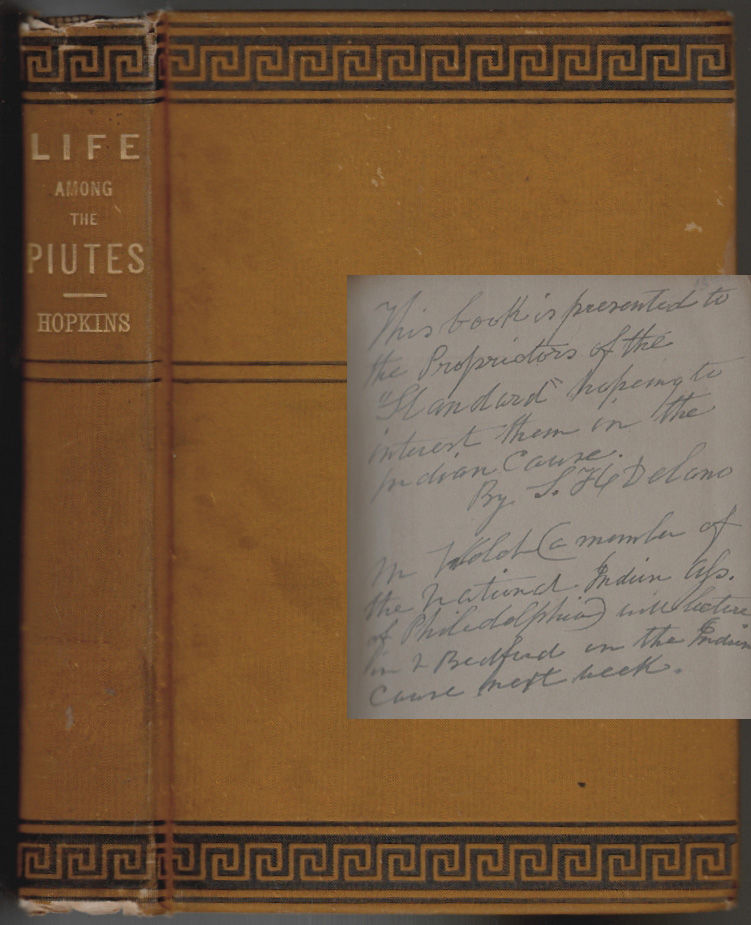 LIFE
AMONG
THE
PIUTES
HOPKINS
This book is presented to
the Proprietors of the
"Standard" hopeing to
interest them in the
Indian Cause.
By S. H Delano
Mr (a member of
the National Indian Ass.
of Philadelphia) will lecture
in N Bedford on the Indian
Cause next week.